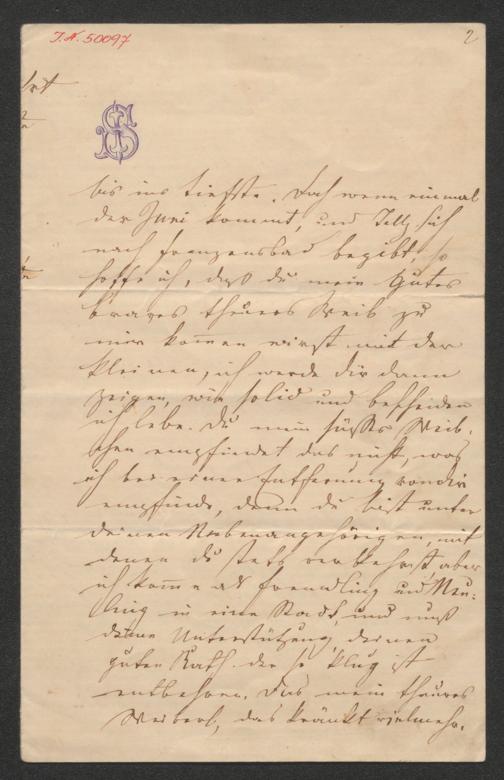 I.N. 50097
2
bis ins tiefste. Doch wenn einmal
der Juni kommt, und Tilly sich
nach Franzensbad begibt, so
hoffe ich, daß du mein gutes
braves theures Weib zu
mir kommen wirst mit der
Kleinen, ich werde dir dann
zeigen, wie solid und bescheiden
ich lebe. Du mein süßes Weib-
chen empfindet das nicht, was
ich bei einer Entfernung von dir
empfinde, denn du bist unter
deinen Nebenangehörigen, mit
denen du stets verkehrst, aber
ich komme als Fremdling und Neu-
ling in eine Stadt und muß
deine Unterstützung deinen
guten Rath der so klug ist
entbehren. Das mein theures
Weiberl, das kränkt vielmehr.